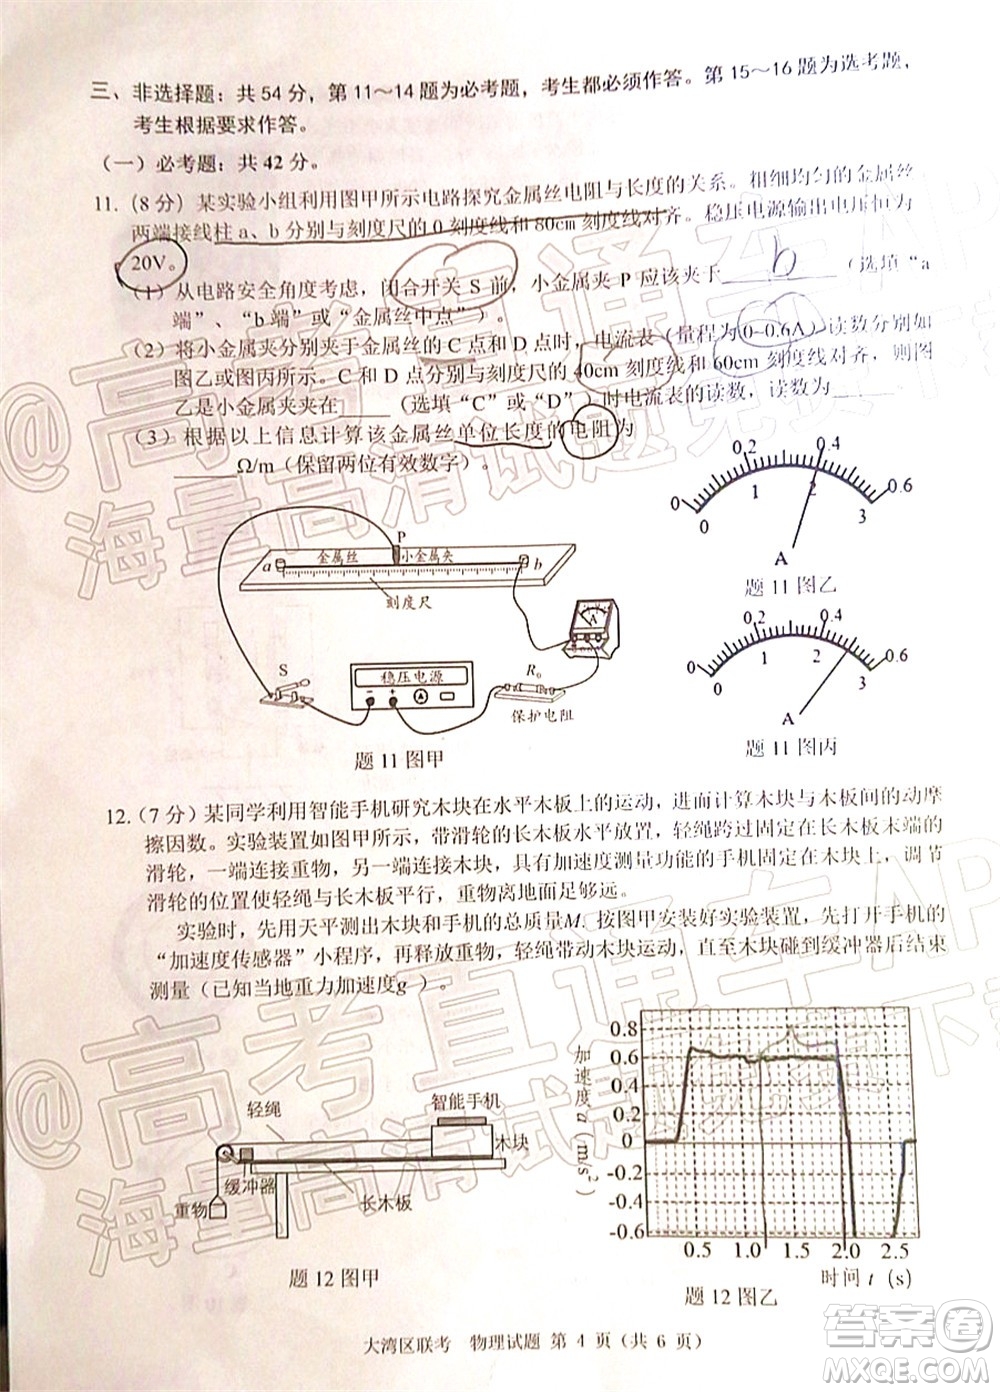 三、非选择题：共 54 分，第 11～14 题为必考题，考生都必须作答。第 15～16 题为选考题，
考生根据要求作答。
（一）必考题：共 42 分。
11.（8 分）某实验小组利用图甲所示电路探究金属丝电阻与长度的关系。粗细均匀的金属丝
两端接线柱 a、b 分别与刻度尺的 0 刻度线和 80cm 刻度线对齐。稳压电源输出电压恒为
20V。
（1）从电路安全角度考虑，闭合开关 S 前，小金属夹 P 应该夹于 b （选填“a
端”、“b 端”或“金属丝中点”）。
（2）将小金属夹分别夹于金属丝的 C 点和 D 点时，电流表（量程为 0~0.6A）读数分别如
图乙或图丙所示。C 点和 D 点分别与刻度尺的 40cm 刻度线和 60cm 刻度线对齐，则图
乙是小金属夹夹在____（选填“C”或“D”）时电流表的读数，读数为____
（3）根据以上信息计算该金属丝单位长度的电阻为
_____Ω/m（保留两位有效数字）。
0 0.2 0.4 0.6
0 1 2 3
A
题 11 图乙
0 0.2 0.4 0.6
0 1 2 3
A
题 11 图丙
P
a 金属丝 小金属夹 b
刻度尺
A
S
稳压电源
R₀
保护电阻
题 11 图甲
12.（7 分）某同学利用智能手机研究木块在水平木板上的运动，进而计算木块与木板间的动摩
擦因数。实验装置如图甲所示，带滑轮的长木板水平放置，轻绳跨过固定在长木板末端的
滑轮，一端连接重物，另一端连接木块，具有加速度测量功能的手机固定在木块上，调节
滑轮的位置使轻绳与长木板平行，重物离地面足够远。
实验时，先用天平测出木块和手机的总质量M. 按图甲安装好实验装置，先打开手机的
“加速度传感器”小程序，再释放重物，轻绳带动木块运动，直至木块碰到缓冲器后结束
测量（已知当地重力加速度g ）。
轻绳
智能手机
木块
缓冲器
重物
长木板
题 12 图甲
加速度 a m/s²
0.8
0.6
0.4
0.2
0
-0.2
-0.4
-0.6
0.5 1.0 1.5 2.0 2.5
时间 t (s)
题 12 图乙
大湾区联考 物理试题 第 4 页（共 6 页）
@高考直通车AP
海量高清试题免费下
@高考直通车AP
海量高清试题
答案圈
MXQE.COM